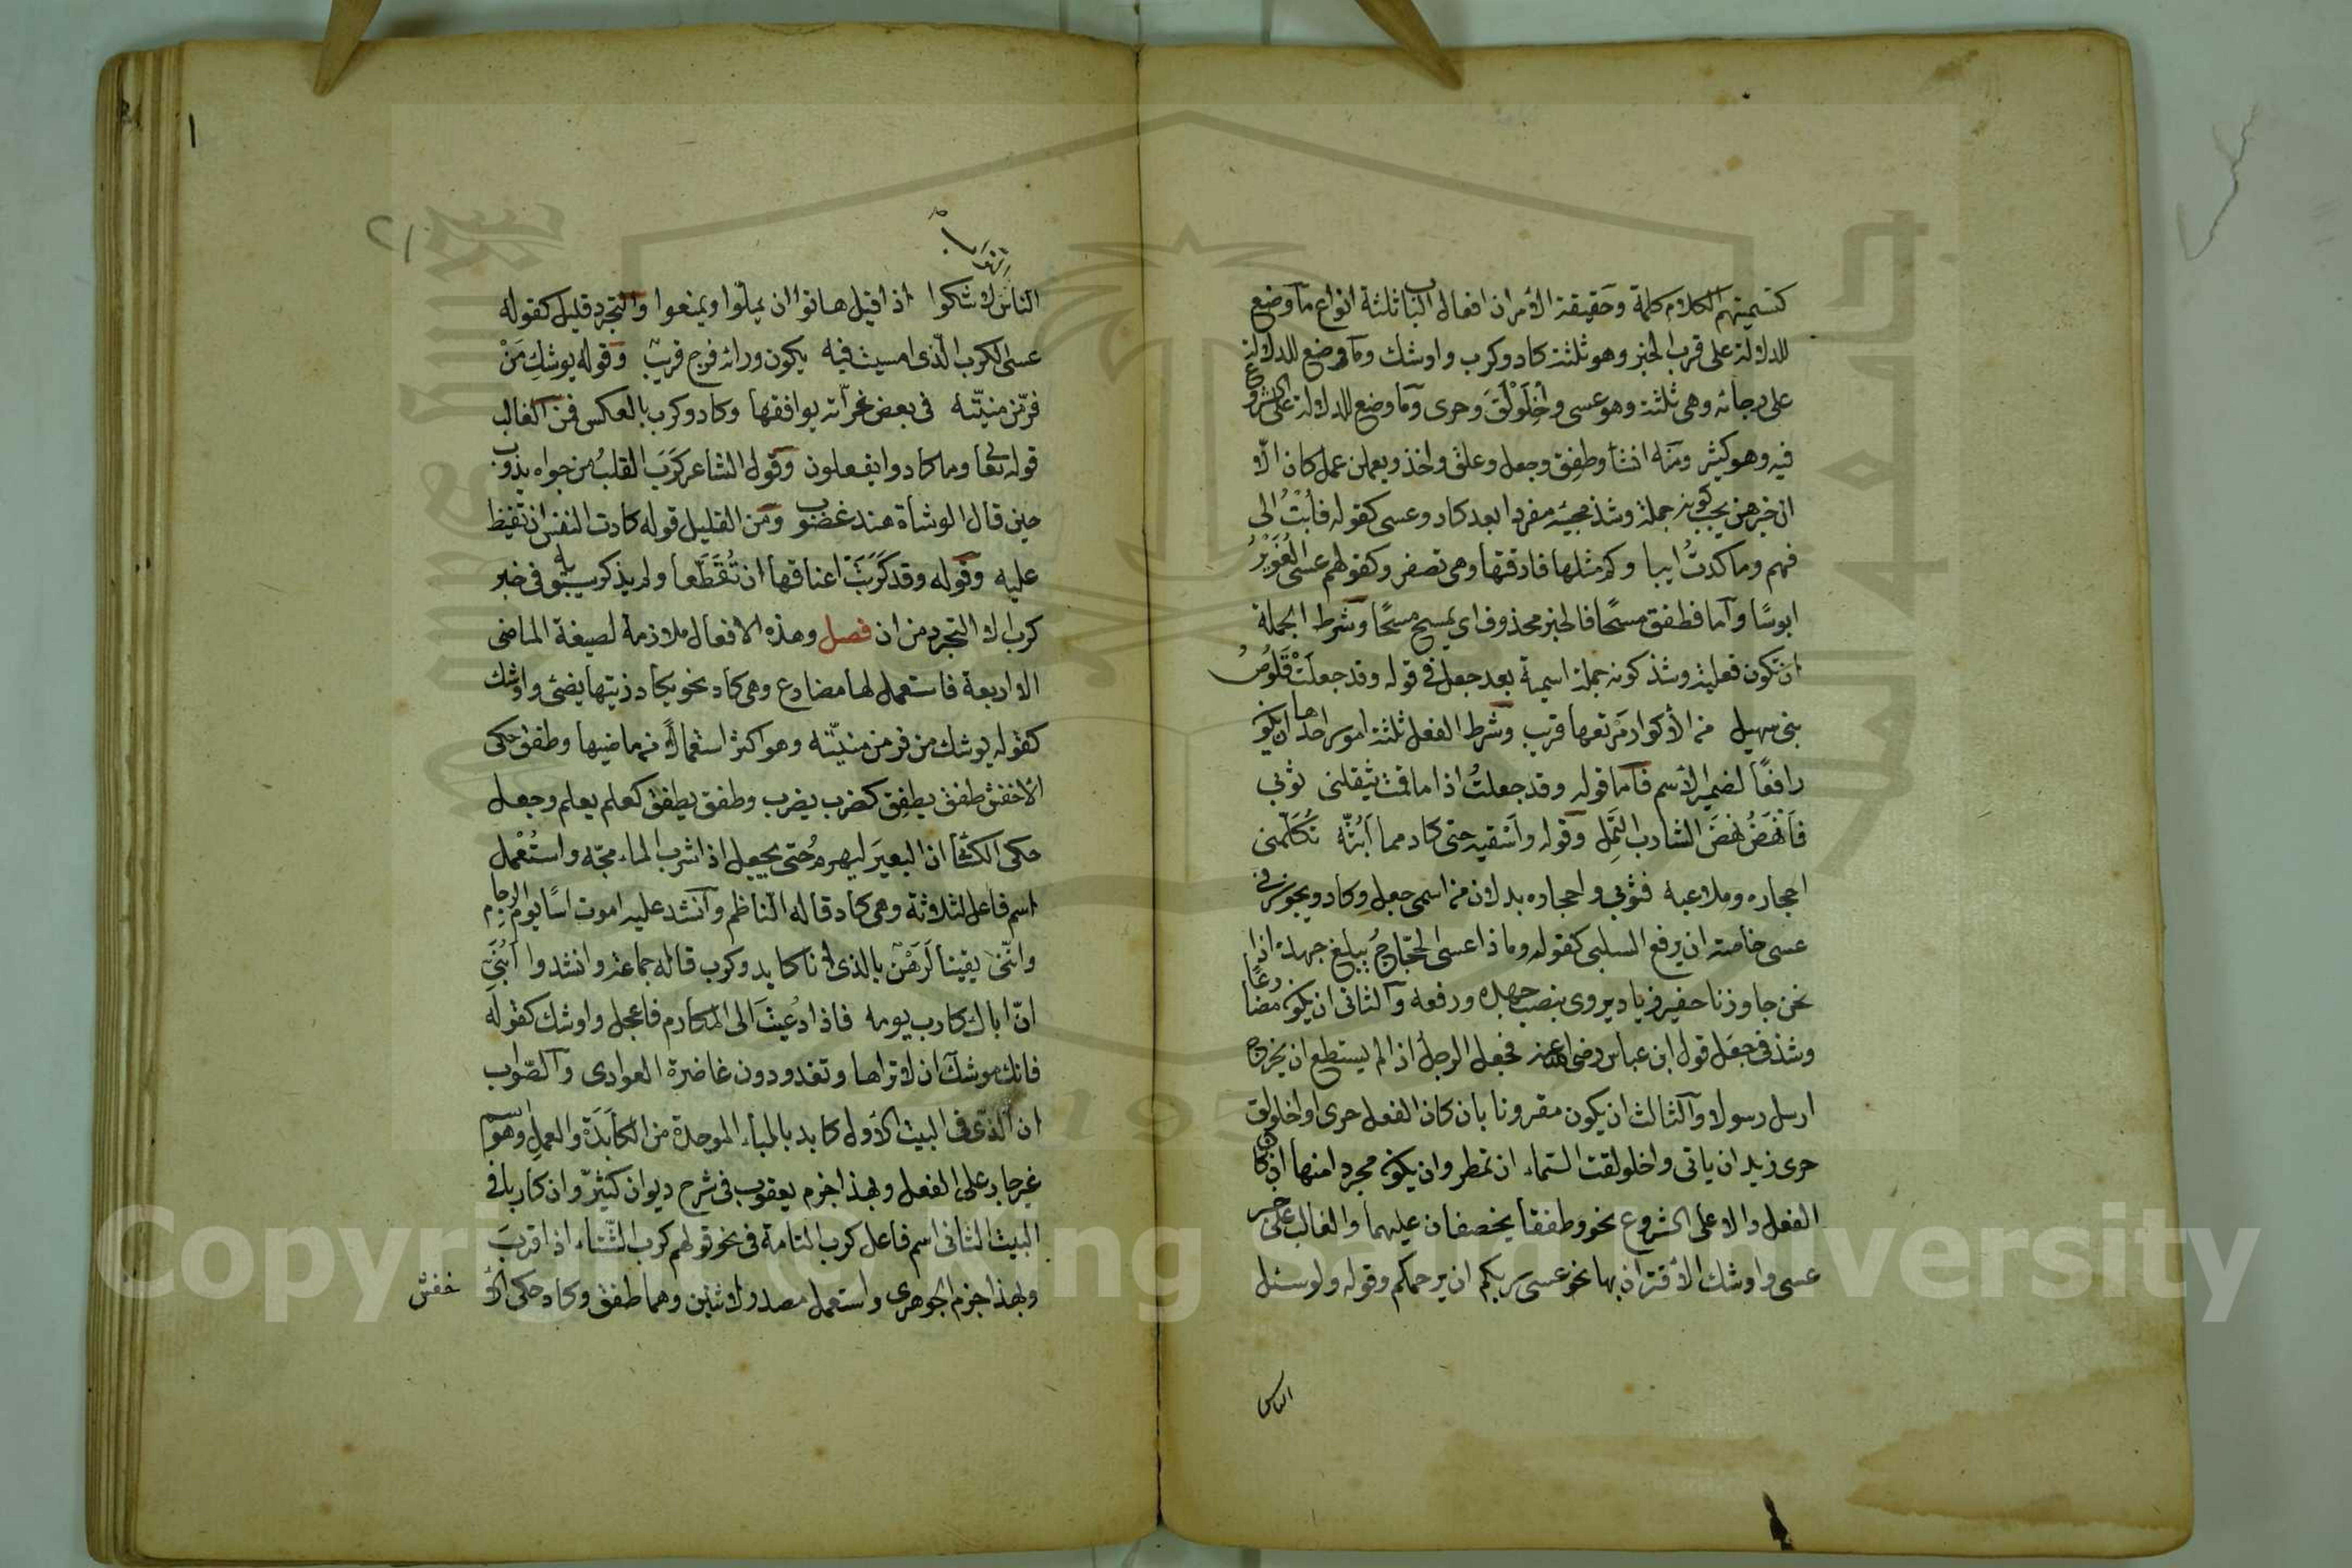 كتسميتهم الكلام كلمة وحقيقة الأمر ان افعال الباب ثلثة انواع ما وضع
للدلالة على قرب الخبر وهو ثلثة كاد وكرب واوشك وما وضع للدلالة
على رجائه وهى ثلثة وهو عسى واخْلَوْلَقَ وحرى وما وضع للدلالة على الشروع
فيه وهو كثير ومنه انشأ وطفِق وجعل وعلق واخذ ويعملن عمل كان الّا
ان خبرهن يجب كونه جملة وشذ مجيئه مفردا بعد كاد وعسى كقوله فأبْتُ الى
فهم وما كدتُ ايبا وكم مثلها فارقتها وهى تصفر وكقولهم عسى الغُوَيْرُ
ابوسًا وآما فطفق مسحًا فالخبر محذوف اى يمسح مسحًا وشرط الجملة
ان تكون فعلية وشذ كونه جملة اسمية بعد جعل فى قوله وقد جعلَتْ قَلُوصُ
بنى سهيل من الأكوار مَرْتعها قريب وشرط الفعل ثلثة امور احدها ان يكون
رافعًا لضمير الأسم فأما قوله وقد جعلتُ اذا ما قمت يثقلنى ثوبي
فأنْهَضُ نهضَ الشارب الثَّمِل وقوله وأسْقيه حتى كاد مما اَبُثّه تكَلّمنى
احجاره وملاعبه فثوبي واحجاره بدلان من اسمى جعل وكاد ويجوز فى
عسى خاصة ان يرفع السلبى كقوله وما ذا عسى الحجّاجُ يبلغ جهده اذا
نحن جاوزنا حفير زياد يروى بنصب جهده ورفعه وآلثانى ان يكون مضارعًا
وشذ فى جعَل قول ابن عباس رضى الله عنه فجعل الرجل اذا لم يستطع ان يخرج
ارسل رسولا وآلثالث ان يكون مقرونا بان كان الفعل حرى او اخلولق
حرى زيد ان ياتى واخلولقت السّماء ان تمطر وان يكون مجردا منها ان كان
الفعل دالا على الشروع نحو وطفقا يخصفان عليهما والغالب على خبر
عسى واوشك الأقتران بها نحو عسى ربكم ان يرحمكم وقوله ولو سئل
الناس
الناس لاشكوا اذا قيل هاتوا ان يملّوا ويمنعوا والتجرد قليل كقوله
عسى الكرب الّذى امسيت فيه يكون ورائه فرج قريبٌ وقوله يوشكِ مَنْ
فرّ من منيّته فى بعض غرّاته يوافقها وكاد وكرب بالعكس فمن الغالب
قوله تعالى وما كادوا يفعلون وقول الشاعر كرَبَ القلبُ من جواه يذوب
حين قال الوشاة هند غضوب ومن القليل قوله كادت النفس ان تفيظ
عليه وقوله وقد كَرَبَتْ اعناقها ان تُقَطَّعا ولم يذكر سيبويه فى خبر
كرب الا التجرد من ان فصل وهذه الافعال ملازمة لصيغة الماضى
الا اربعة فاستعمل لها مضارع وهى كاد نحو يكاد زيتها يضئ واوشك
كقوله يوشك من فر من منيّته وهو اكثر استعمالًا من ماضيها وطفق حكى
الأخفش طفَق يطفِق كضرب يضرب وطفق يطفَق كعلم يعلم وجعل
حكى الكسائى ان البعيرَ ليهرم حتى يجعل اذا شرب الماء مجّه واستُعْمل
اسم فاعل لثلاثة وهى كاد قاله الناظم وآنشد عليه اموت اسًا يوم الرجام
وانّنى يقينا لَرَهْنٌ بالذى انا كايد وكرب قاله جماعة وانشدوا اَبُنَىّ
انّ اباك كارب يومه فاذا دُعيتَ الى المكارم فاعجل واوشك كقوله
فانك موشك ان لا تراها وتعدو دون غاضرة العوادى وآلصّواب
ان الّذى فى البيت الأول كابد بالباء الموحدة من المكَابَدَة والعمل وهو اسم
غير جار على الفعل وبهذا جزم يعقوب فى شرح ديوان كثيّر وان كاربا فى
البيت الثانى اسم فاعل كرب التامة فى نحو قولهم كرب الشّتاء اذا قربَ
وبهذا جزم الجوهرى واستعمل مصدر لاثنين وهما طفق وكاد حكى الأخفش
Copyright © King Saud University